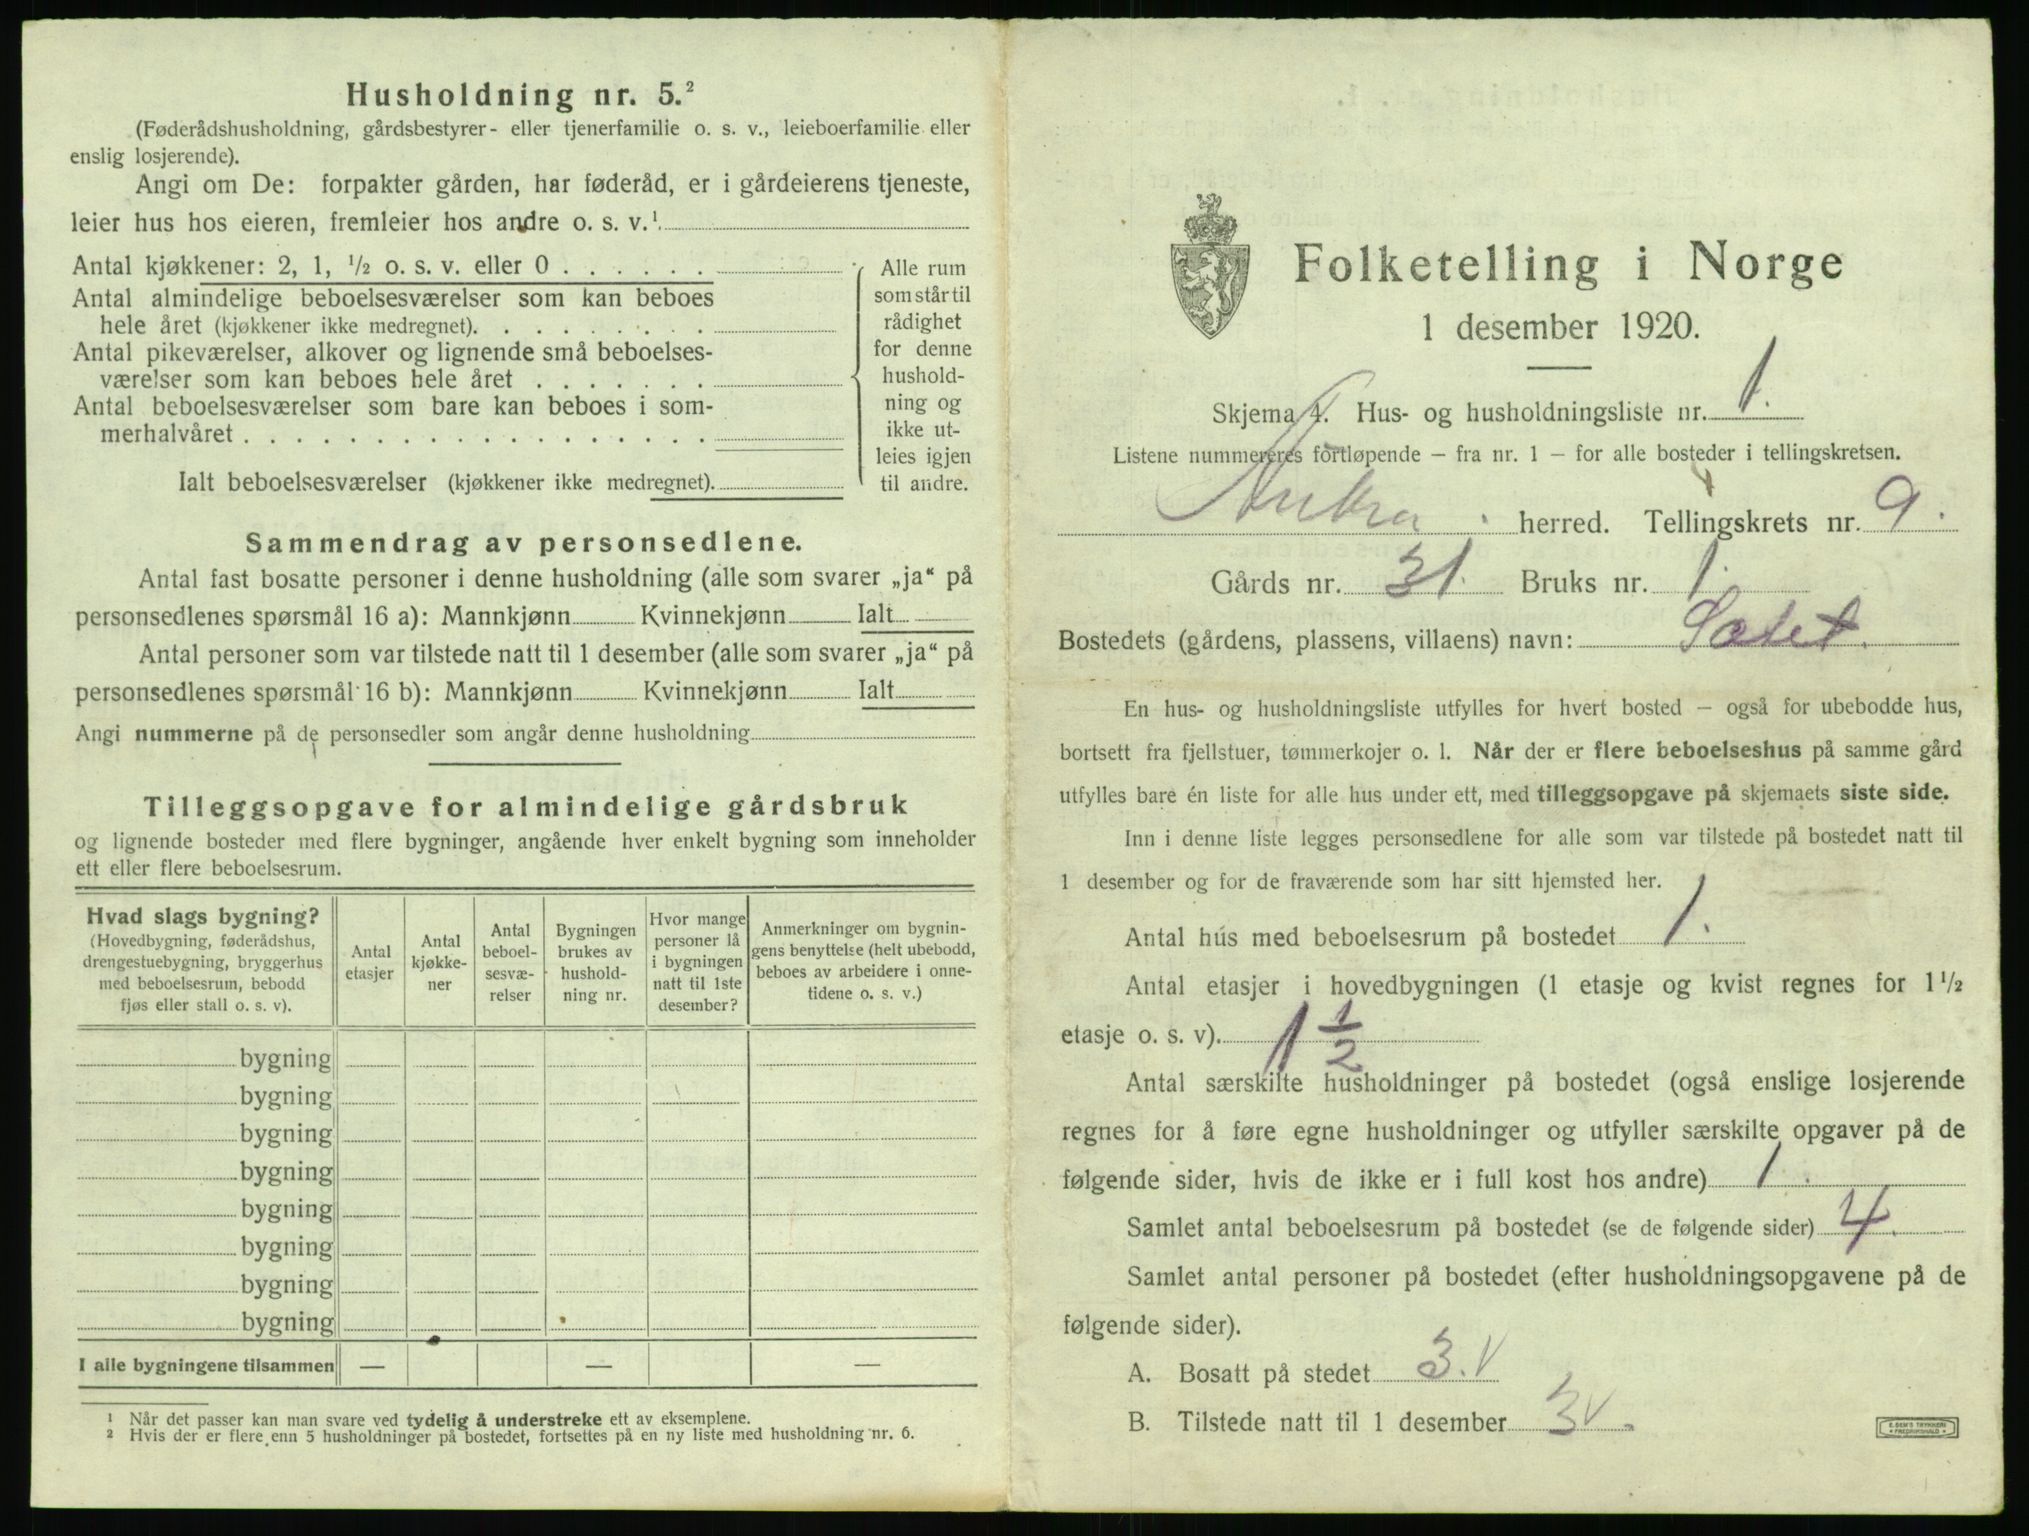 Husholdning nr. 5.²
(Føderådshusholdning, gårdsbestyrer- eller tjenerfamilie o. s. v., leieboerfamilie eller
enslig losjerende).
Angi om De: forpakter gården, har føderåd, er i gårdeierens tjeneste,
leier hus hos eieren, fremleier hos andre o. s. v.¹
Antal kjøkkener: 2, 1, ½ o. s. v. eller 0
Antal almindelige beboelsesværelser som kan beboes
hele året (kjøkkener ikke medregnet).
Antal pikeværelser, alkover og lignende små beboelses-
værelser som kan beboes hele året
Antal beboelsesværelser som bare kan beboes i som-
merhalvåret
Ialt beboelsesværelser (kjøkkener ikke medregnet).
Alle rum
som står til
rådighet
for denne
hushold-
ning og
ikke ut-
leies igjen
til andre.
Sammendrag av personsedlene.
Antal fast bosatte personer i denne husholdning (alle som svarer „ja“ på
personsedlenes spørsmål 16 a): Mannkjønn Kvinnekjønn Ialt
Antal personer som var tilstede natt til 1 desember (alle som svarer „ja“ på
personsedlenes spørsmål 16 b): Mannkjønn Kvinnekjønn Ialt
Angi nummerne på de personsedler som angår denne husholdning
Tilleggsopgave for almindelige gårdsbruk
og lignende bosteder med flere bygninger, angående hver enkelt bygning som inneholder
ett eller flere beboelsesrum.
Hvad slags bygning?
(Hovedbygning, føderådshus,
drengestuebygning, bryggerhus
med beboelsesrum, bebodd
fjøs eller stall o. s. v).
Antal
etasjer
Antal
kjøkke-
ner
Antal
beboel-
sesvæ-
relser
Bygningen
brukes av
hushold-
ning nr.
Hvor mange
personer lå
i bygningen
natt til 1ste
desember?
Anmerkninger om bygnin-
gens benyttelse (helt ubebodd,
beboes av arbeidere i onne-
tidene o. s. v.)
bygning
bygning
bygning
bygning
bygning
bygning
bygning
bygning
I alle bygningene tilsammen — — —
¹ Når det passer kan man svare ved tydelig å understreke ett av eksemplene.
² Hvis der er flere enn 5 husholdninger på bostedet, fortsettes på en ny liste med husholdning nr. 6.
Folketelling i Norge
1 desember 1920.
Skjema 4. Hus- og husholdningsliste nr. 1.
Listene nummereres fortløpende — fra nr. 1 — for alle bosteder i tellingskretsen.
herred. Tellingskrets nr. 9.
Gårds nr. 31. Bruks nr. 1.
Bostedets (gårdens, plassens, villaens) navn: Sætet.
En hus- og husholdningsliste utfylles for hvert bosted — også for ubebodde hus,
bortsett fra fjellstuer, tømmerkojer o. l. Når der er flere beboelseshus på samme gård
utfylles bare én liste for alle hus under ett, med tilleggsopgave på skjemaets siste side.
Inn i denne liste legges personsedlene for alle som var tilstede på bostedet natt til
1 desember og for de fraværende som har sitt hjemsted her.
Antal hus med beboelsesrum på bostedet 1.
Antal etasjer i hovedbygningen (1 etasje og kvist regnes for 1½
etasje o. s. v). 1½
Antal særskilte husholdninger på bostedet (også enslige losjerende
regnes for å føre egne husholdninger og utfyller særskilte opgaver på de
følgende sider, hvis de ikke er i full kost hos andre) 1.
Samlet antal beboelsesrum på bostedet (se de følgende sider) 4.
Samlet antal personer på bostedet (efter husholdningsopgavene på de
følgende sider).
A. Bosatt på stedet 3. v
B. Tilstede natt til 1 desember 3 v.
E. SEM'S TRYKKERI
• FREDRIKSHALD •